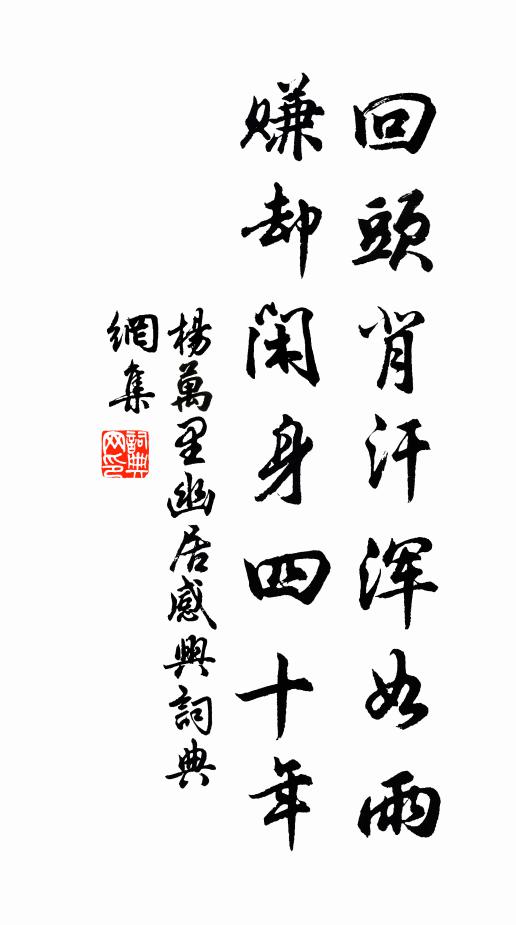 回頭背汗渾如雨
賺却閑身四十年
楊萬里幽居感興詞典
網集
詞典
网印